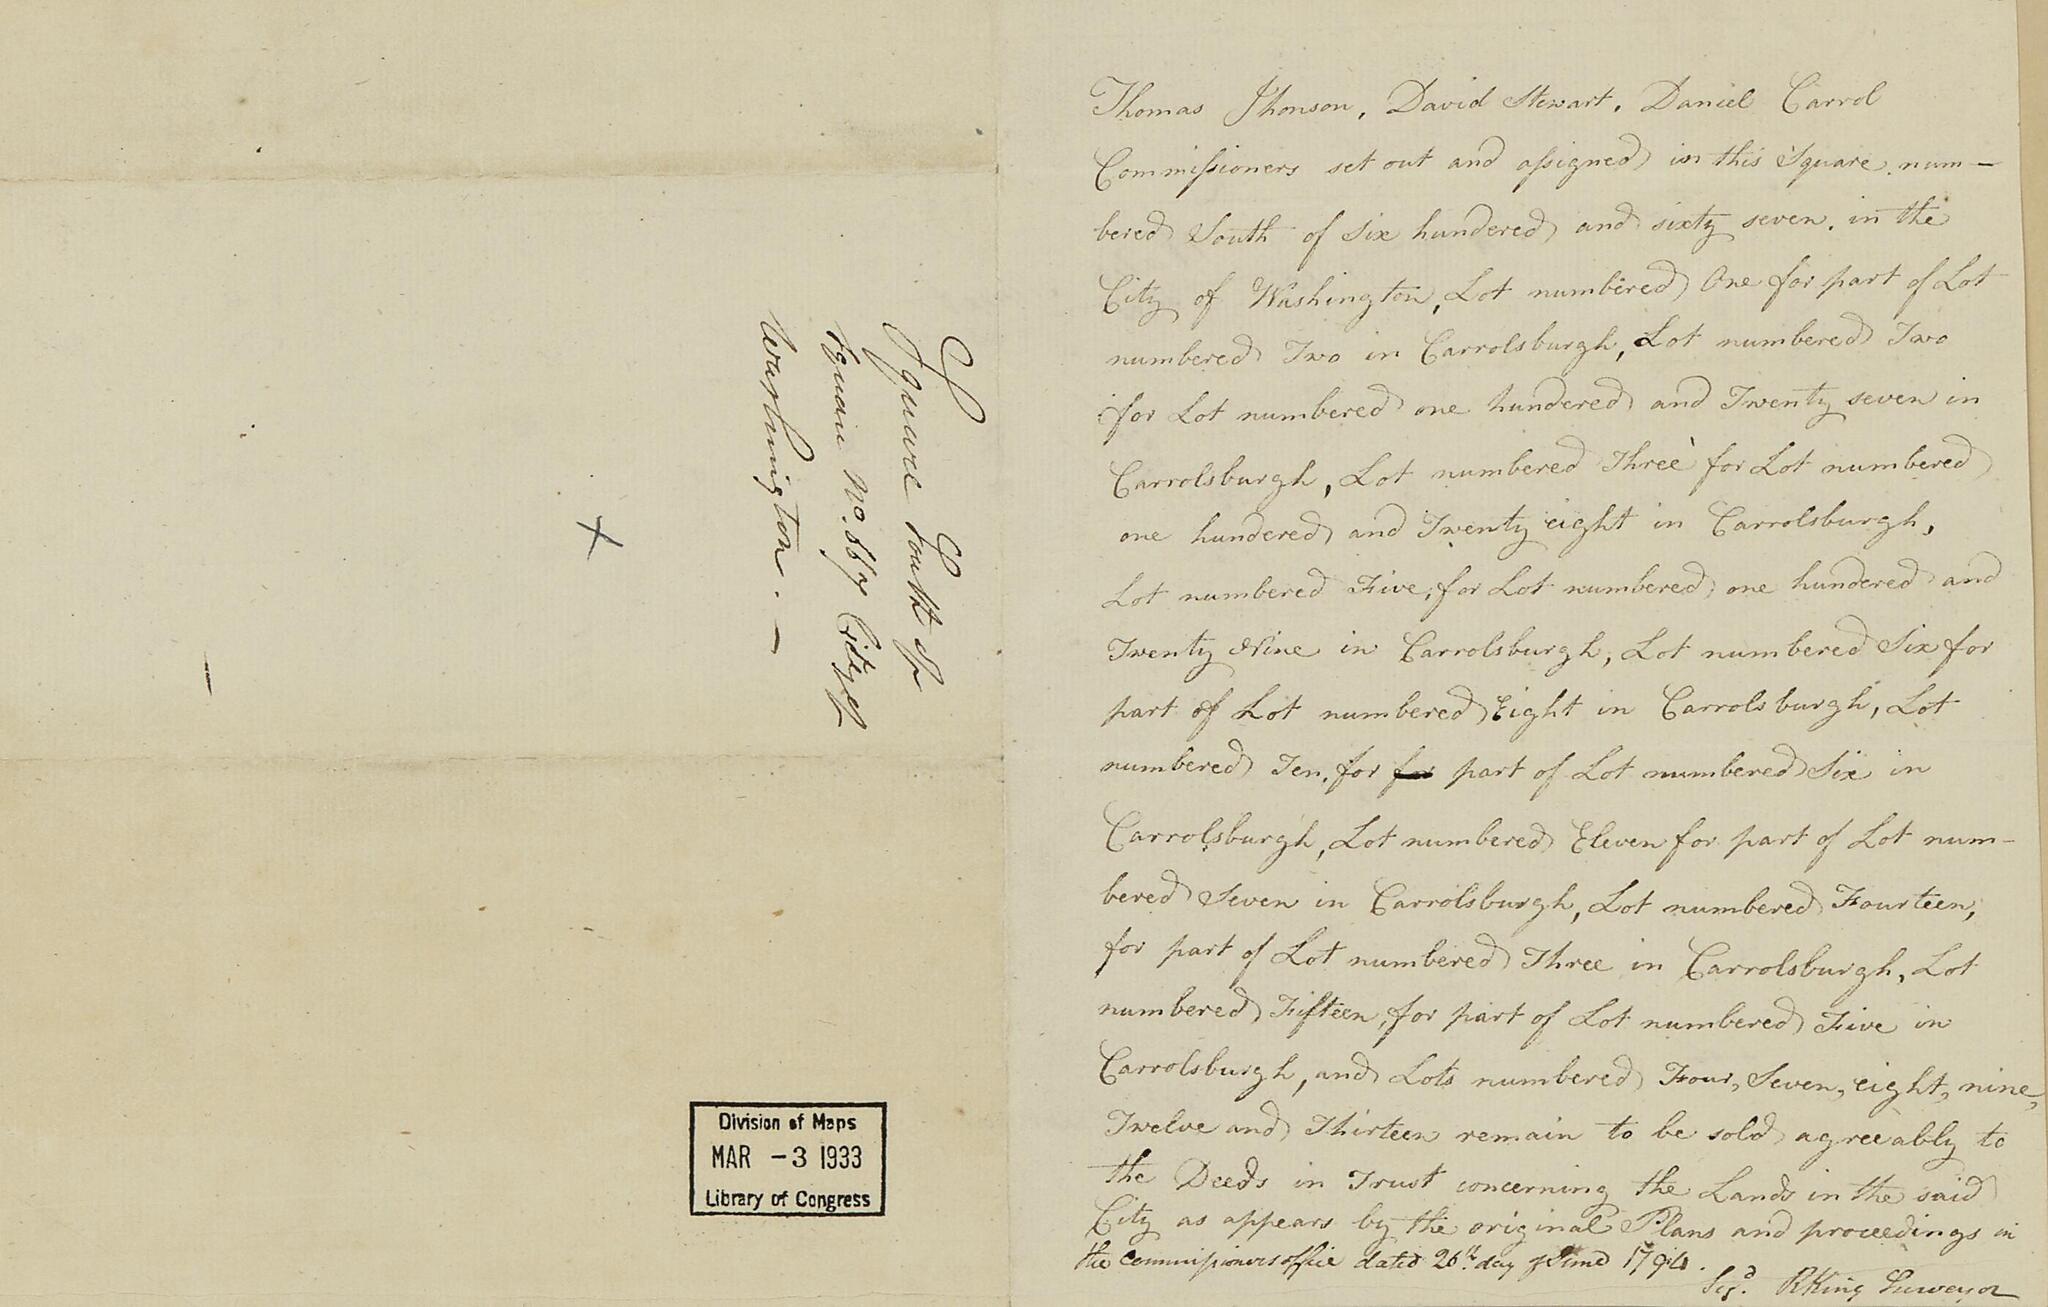 Square South of
Square No. 667 City of
Washington. —
Division of Maps
MAR -3 1933
Library of Congress
Thomas Jhonson, David Stewart, Daniel Carrol
Commissioners set out and assigned in this Square num-
bered South of six hundered and sixty seven. in the
City of Washington, Lot numbered One for part of Lot
numbered Two in Carrolsburgh, Lot numbered Two
for Lot numbered one hundered and Twenty seven in
Carrolsburgh, Lot numbered Three for Lot numbered
one hundered and Twenty eight in Carrolsburgh,
Lot numbered Five, for Lot numbered one hundered and
Twenty Nine in Carrolsburgh, Lot numbered Six for
part of Lot numbered Eight in Carrolsburgh, Lot
numbered Ten, for for part of Lot numbered Six in
Carrolsburgh, Lot numbered Eleven for part of Lot num-
bered Seven in Carrolsburgh, Lot numbered Fourteen,
for part of Lot numbered Three in Carrolsburgh, Lot
numbered Fifteen, for part of Lot numbered Five in
Carrolsburgh, and Lots numbered Four, Seven, eight, nine,
Twelve and Thirteen remain to be sold agreeably to
the Deeds in Trust concerning the Lands in the said
City as appears by the original Plans and proceedings in
the Commissioners office dated 26th. day of June 1794.
Sigd. RKing Surveyor